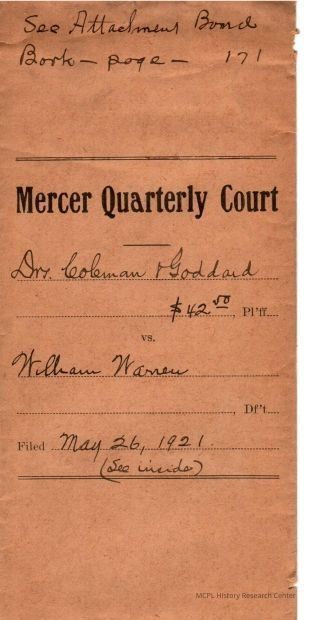 See Attachment Bond
Book - page - 171
Mercer Quarterly Court
Drs. Coleman & Goddard
$42.50, Pl'ff.
vs.
William Warren
, Df't.
Filed May 26, 1921.
(See inside)
MCPL History Research Center